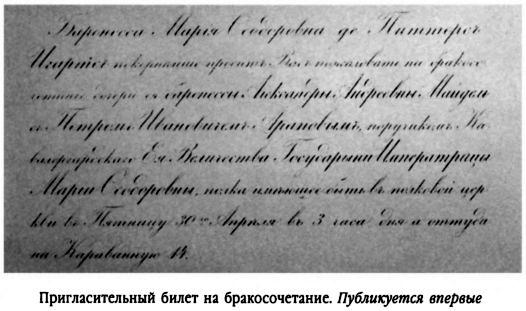 Баронесса Марія Ѳеодоровна де Питтерсъ
покорнѣйше проситъ Васъ пожаловать на бракосо-
четаніе дочери ея баронессы Александры Андреевны Майдель
съ Петромъ Ивановичемъ Араповымъ, поручикомъ Ка-
валергардскаго Ея Величества Государыни Императрицы
Маріи Ѳеодоровны, полка имѣющее быть въ полковой цер-
кви въ Пятницу 30го Апрѣля въ 3 часа дня а оттуда
на Караванную 14.
Пригласительный билет на бракосочетание. Публикуется впервые